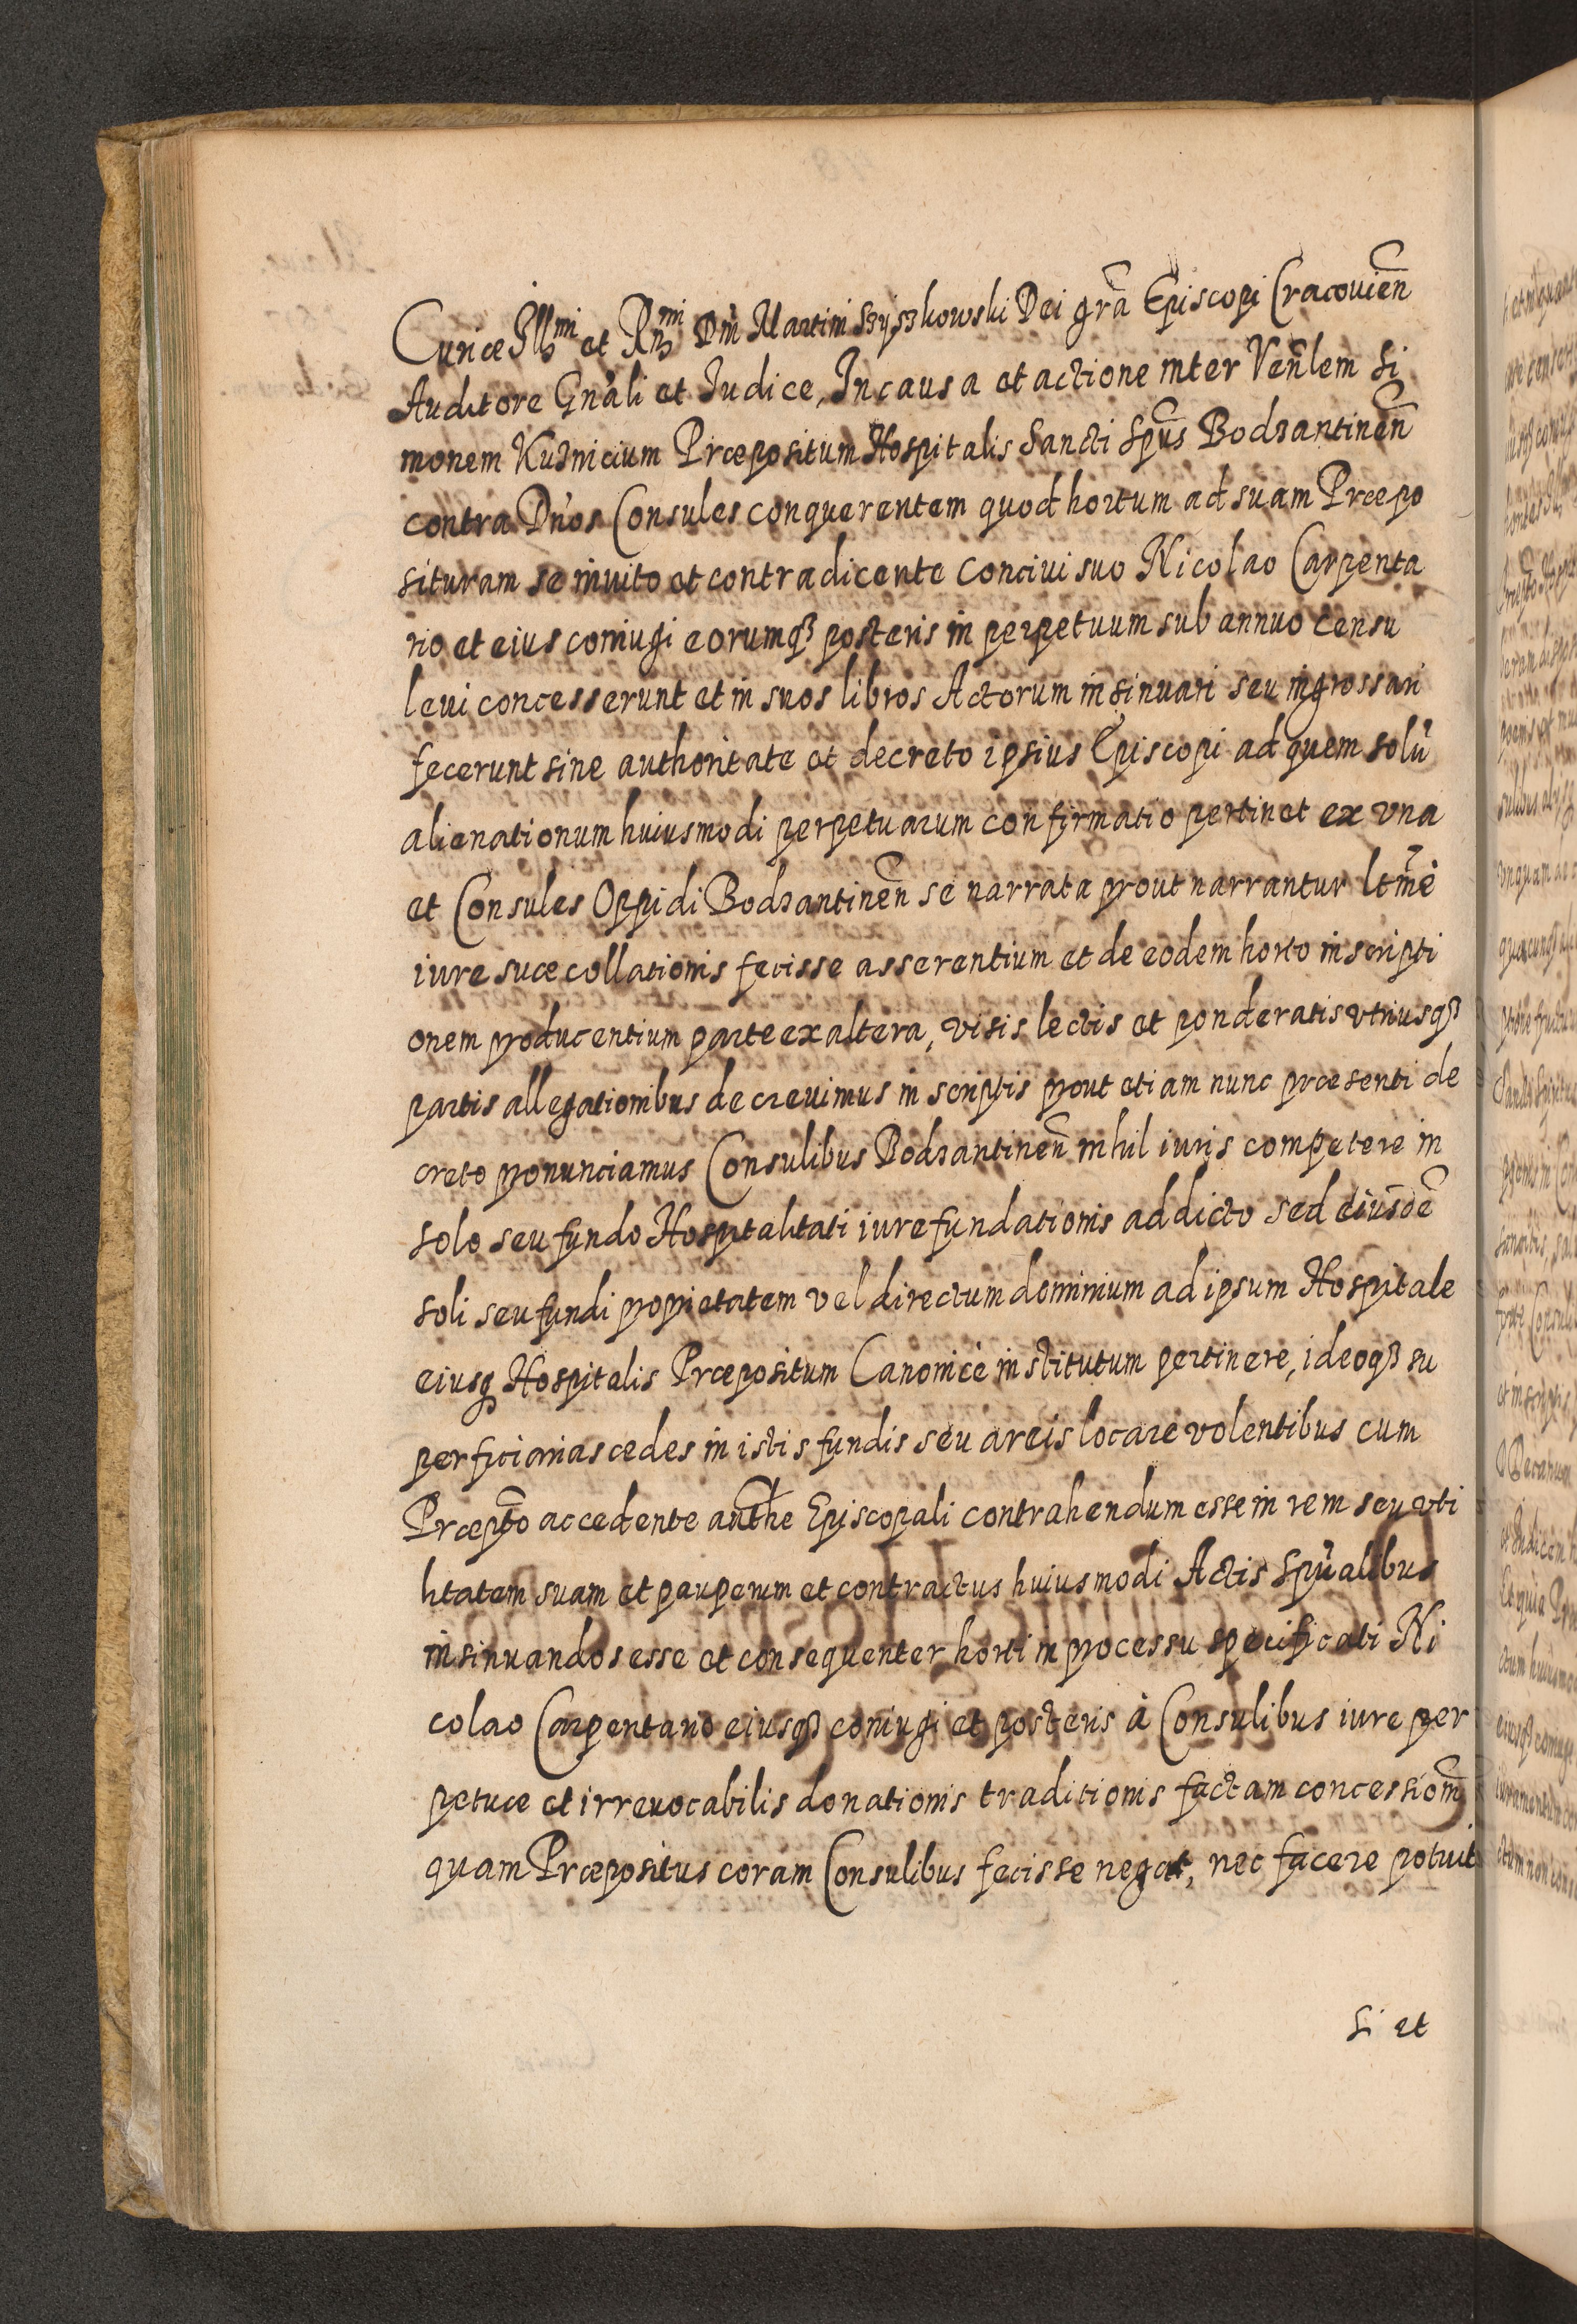 Curiæ Illmi et Rmi Dni Martini Szyszkowski Dei grā Episcopi Cracouien̄
Auditore Gnāli et Iudice, In causa et actione inter Ven̄lem Si
monem Kuznicium Præpositum Hospitalis Sancti Spūs Bodzantinen̄
contra Dn̄os Consules conquerentem quod hortum ad suam Præpo
situram se inuito et contradicente conciui suo Nicolao Carpenta
rio et eius coniugi eorumqꝫ posteris in perpetuum sub annuo censu
leui concesserunt et in suos libros Actorum insinuari seu ingrossari
fecerunt sine authoritate et decreto ipsius Episcopi ad quem solū
alienationum huiusmodi perpetuarum confirmatio pertinet ex vna
et Consules Oppidi Bodzantinen̄ se narrata prout narrantur ltm̄è
iure suæ collationis fecisse asserentium et de eodem horto inscripti
onem producentium parte ex altera, visis lectis et ponderatis vtriusqꝫ
partis allegationibus decreuimus in scriptis prout etiam nunc præsenti de
creto pronunciamus Consulibus Bodzantinen̄ nihil iuris competere in
solo seu fundo Hospitalitati iure fundationis addicto sed eiusdē
soli seu fundi proprietatem vel directum dominium ad ipsum Hospitale
eiusqꝫ Hospitalis Præpositum Canonicè institutum pertinere, ideoqꝫ su
perficiarias ædes in istis fundis seu areis locare volentibus cum
Præpt̄o accedente aut̄he Episcopali contrahendum esse in rem seu vti
litatem suam et pauperum et contractus huiusmodi Actis Spūalibus
insinuandos esse et consequenter horti in processu specificati Ni
colao Carpentario eiusqꝫ coniugi et posteris à Consulibus iure per
petuæ et irreuocabilis donationis traditionis factam concessiom̄
quam Præpositus coram Consulibus fecisse negat, nec facere potuit
Si et